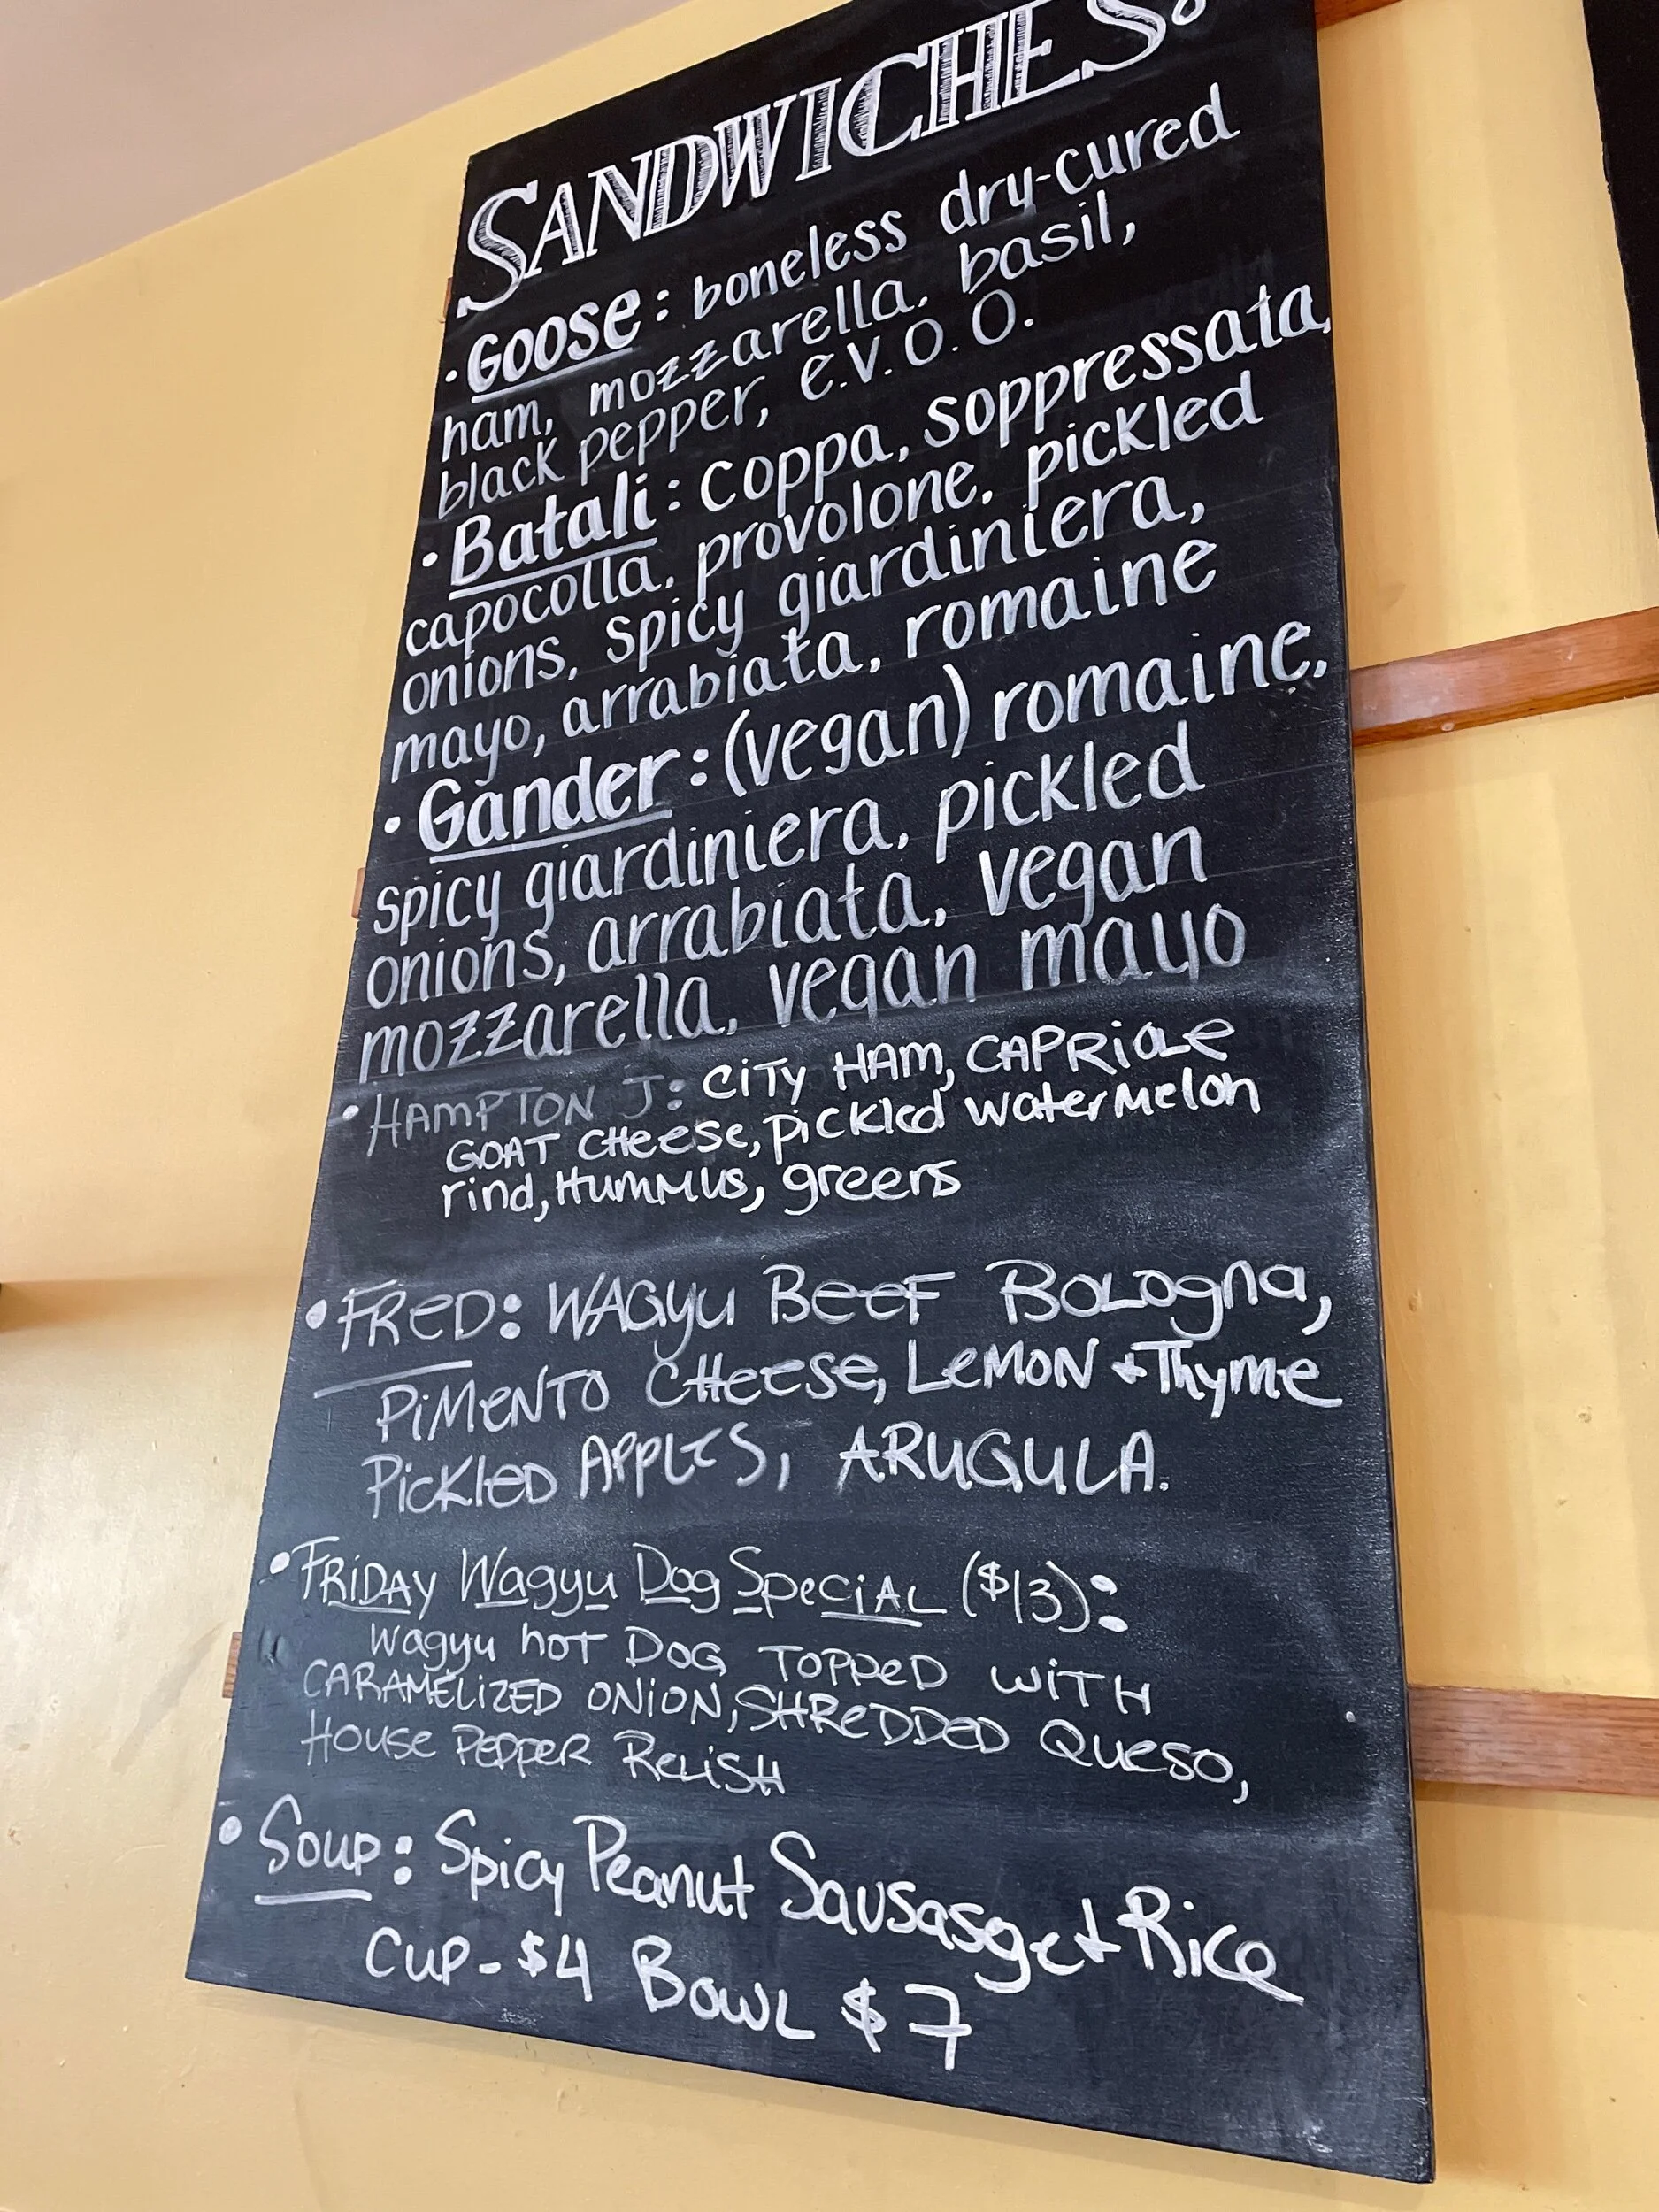 SANDWICHES:
• Goose: boneless dry-cured
ham, mozzarella, basil,
black pepper, e.v.o.o.
• Batali: coppa, soppressata,
capocolla, provolone, pickled
onions, spicy giardiniera,
mayo, arrabiata, romaine
• Gander: (vegan) romaine,
spicy giardiniera, pickled
onions, arrabiata, vegan
mozzarella, vegan mayo
• HAMPTON J: CITY HAM, CAPRIOLE
GOAT CHEESE, PICKLED WATERMELON
rind, HUMMUS, greens
• FRED: WAGYU BEEF BOLOGNA,
PIMENTO CHEESE, LEMON + THYME
PICKLED APPLES, ARUGULA.
• FRIDAY Wagyu Dog SPECIAL ($13):
Wagyu HOT DOG TOPPED WITH
CARAMELIZED ONION, SHREDDED QUESO,
HOUSE PEPPER RELISH
• Soup: Spicy Peanut Sausasge + Rice
CUP - $4 BOWL $7